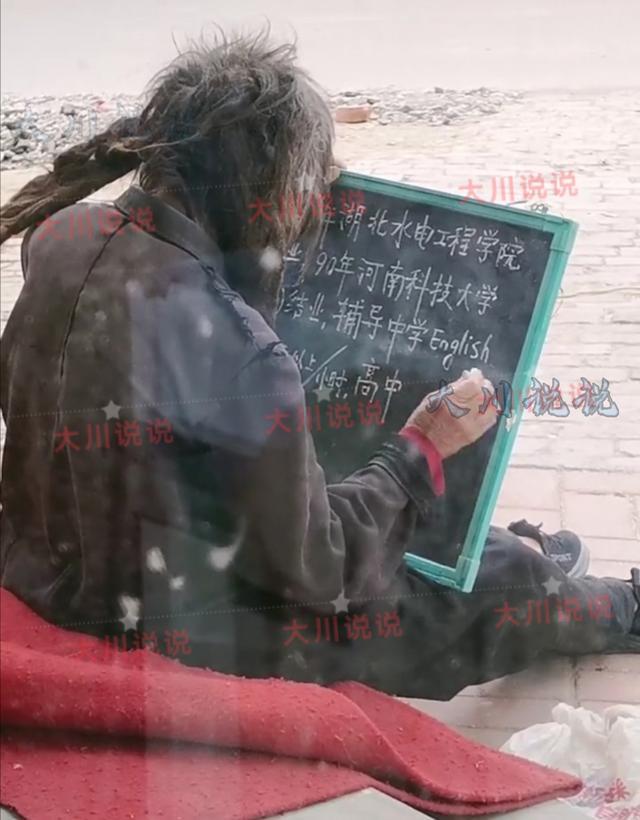 湖北水电工程学院
90年河南科技大学
结业,辅导中学English
以上/小时.高中
大川说说
大川说说
大川说说
大川说说
大川说说
大川说说
大川说说
大川说说
大川说说
大川说说